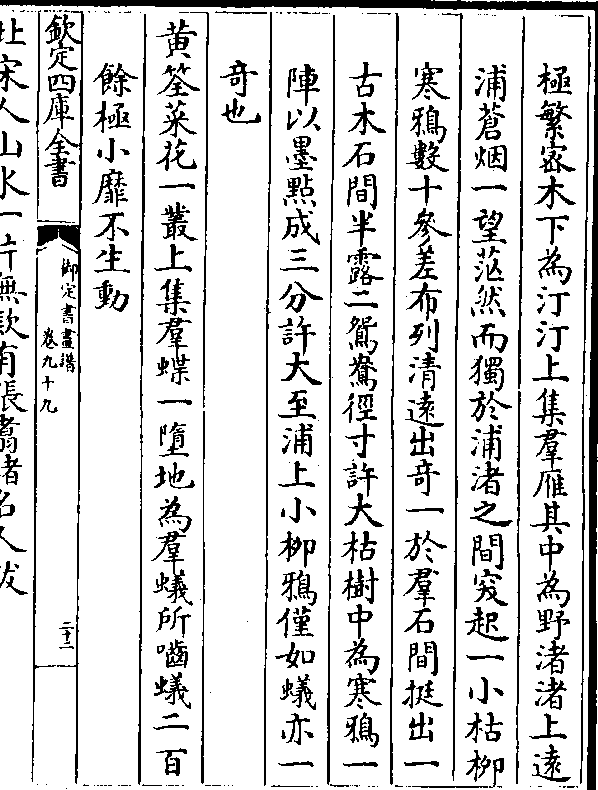 極繁密木下為汀汀上集羣雁其中為野渚渚上遠
浦蒼烟一望茫然而獨於浦渚之間突起一小枯栁
寒鴉數十參差布列清遠出奇一於羣石間挺出一
古木石間半露二鴛鴦徑寸許大枯樹中為寒鴉一
陣以墨點成三分許大至浦上小栁鴉僅如蟻亦一
奇也
黄筌菜花一叢上集羣蝶一墮地為羣蟻所嚙蟻二百
餘極小靡不生動
欽定四庫全書
御定書畫譜
卷九十九
二十二
宋人山水一片無款有張翥諸名人跋